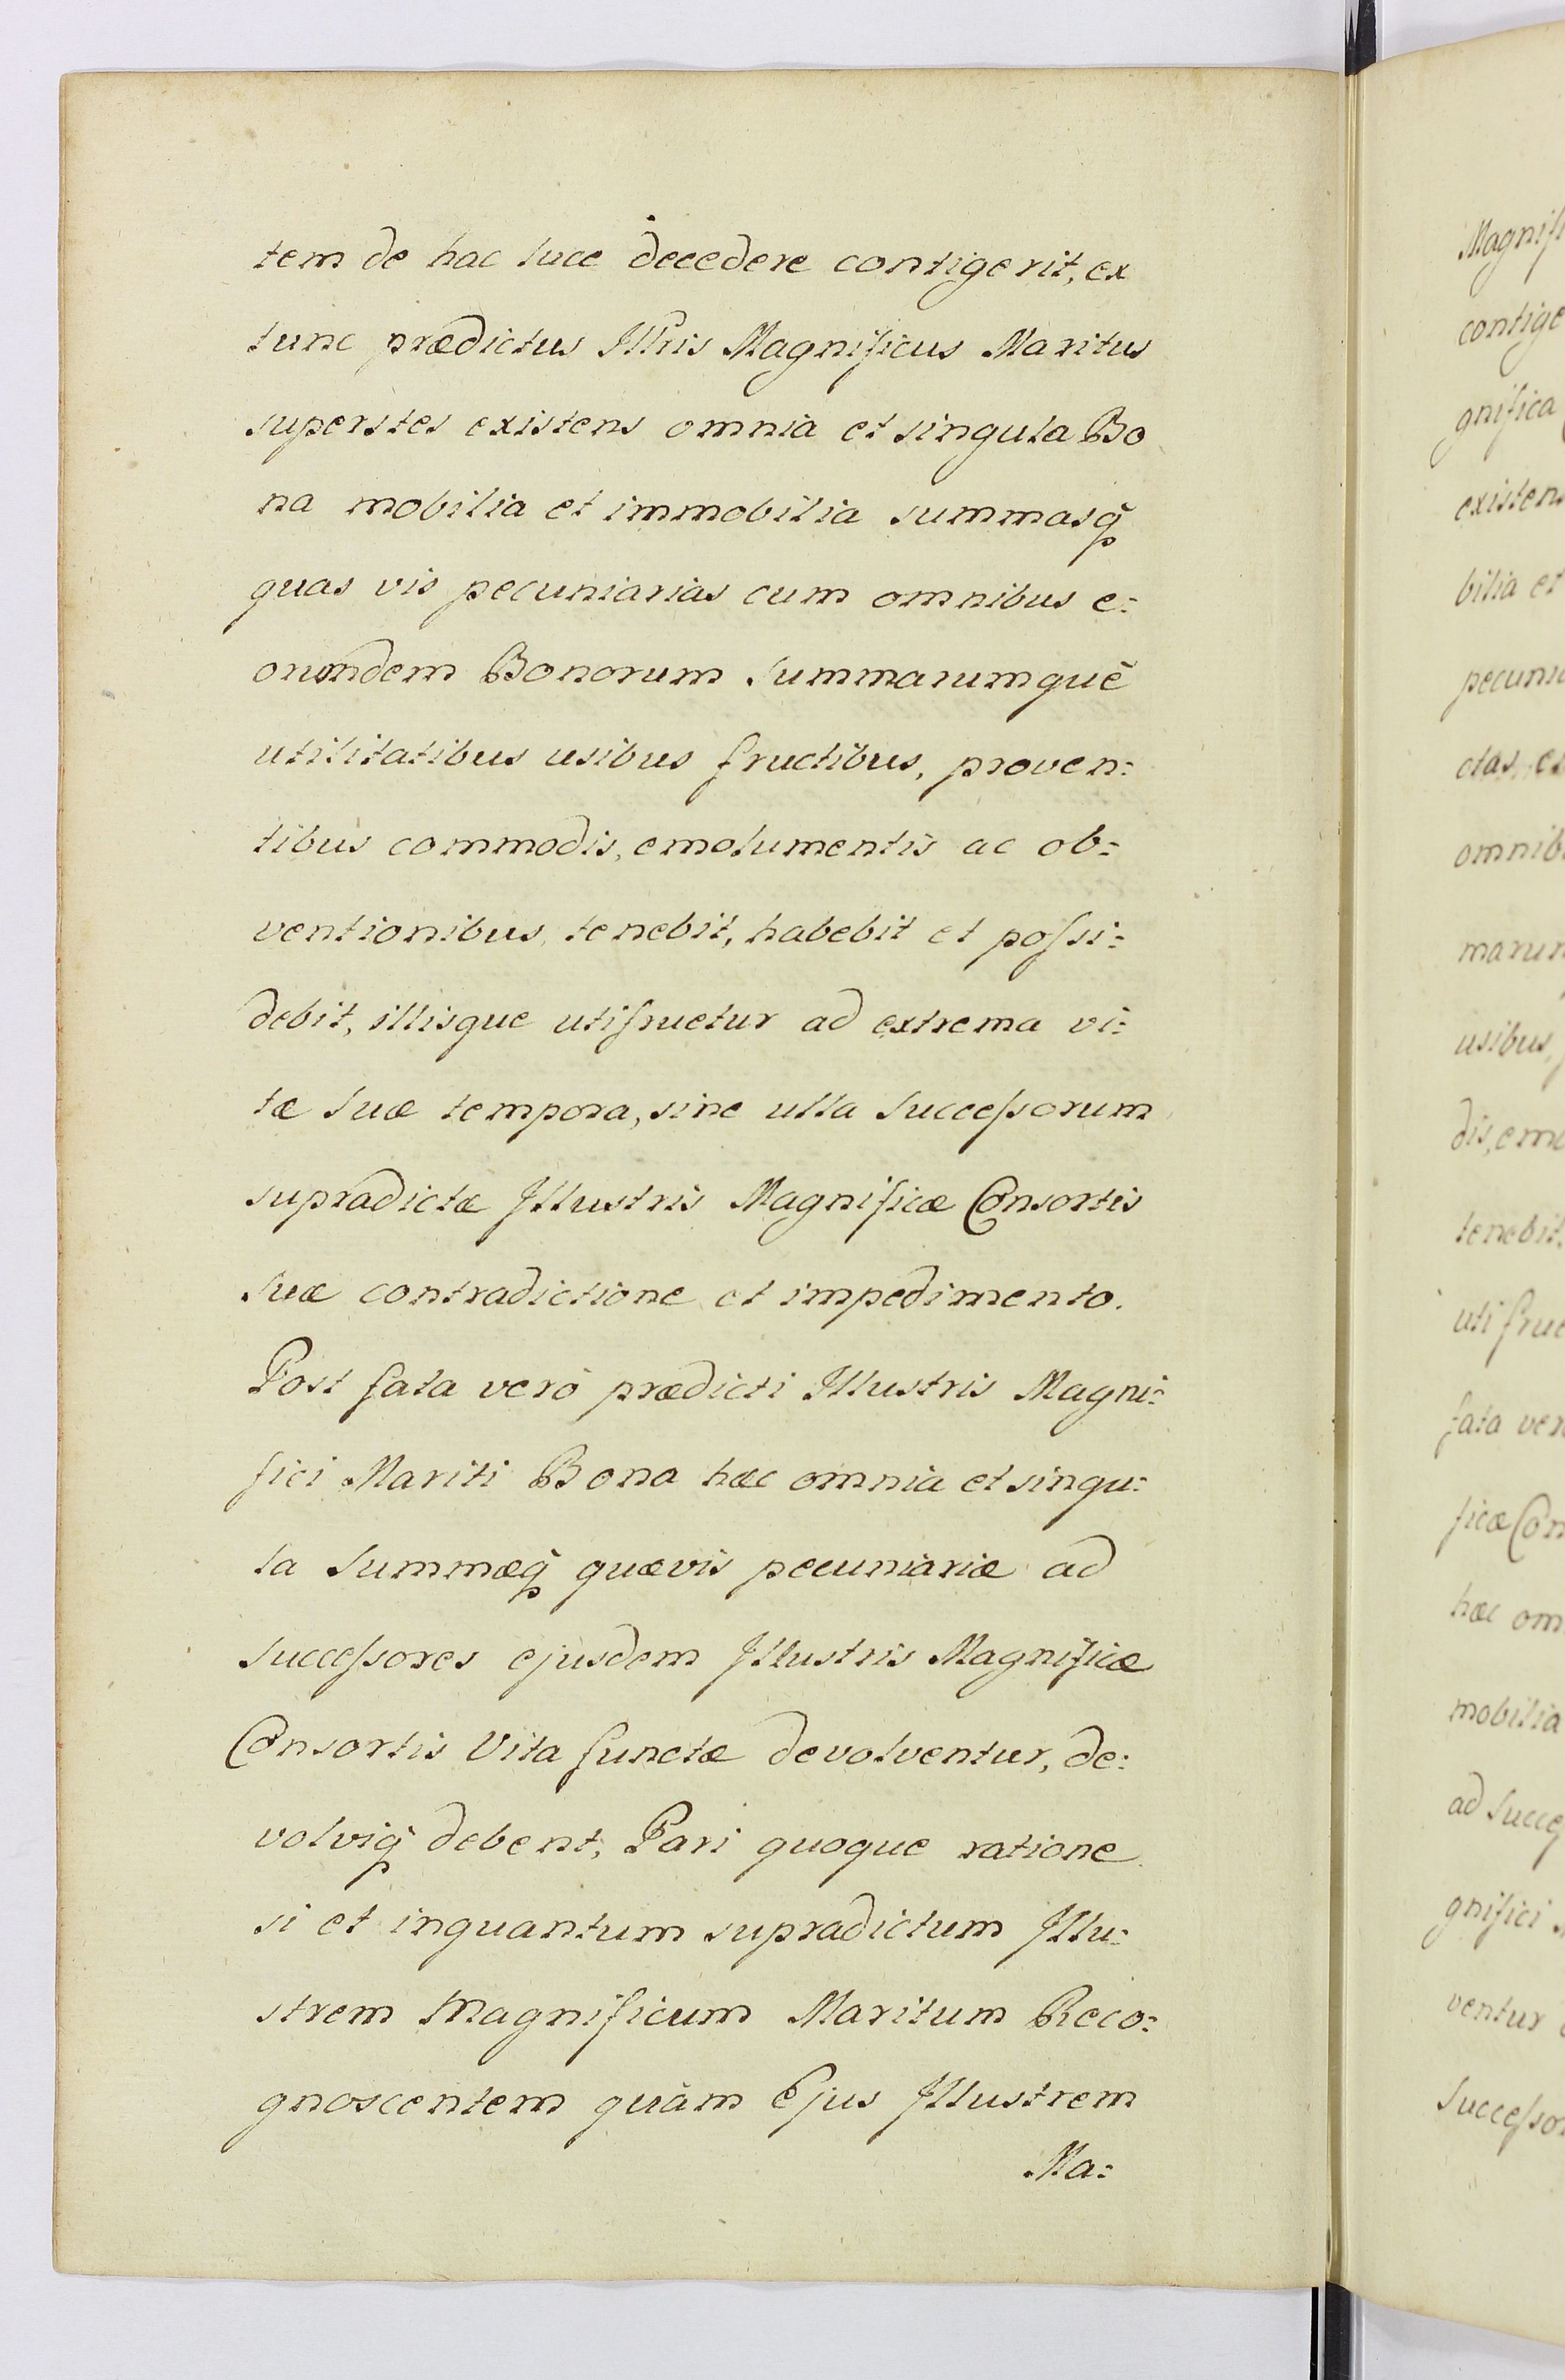 tem de hac luce decedere contigerit, ex
tunc prædictus Illris Magnificus Maritus
superstes existens omnia et singula Bo
na mobilia et immobilia summasq̃
quas vis pecuniarias cum omnibus e:
orumdem Bonorum summarumquè
utilitatibus usibus fructibus, proven:
tibus commodis, emolumentis ac ob:
ventionibus, tenebit, habebit et poſsi:
debit, illisque utifruetur ad extrema vi:
tæ suæ tempora, sine ulla succeſsorum
supradictæ Illustris Magnificæ Consortis
suæ contradictione et impedimento.
Post fata verò prædicti Illustris Magni:
fici Mariti Bona hæc omnia et singu:
la summæq̃ quævis pecuniariæ ad
succeſsores ejusdem Illustris Magnificæ
Consortis Vita functæ devolventur, de:
volviq̃ debent, Pari quoque ratione
si et inquantum supradictum Illu:
strem Magnificum Maritum Reco:
gnoscentem quàm Ejus Illustrem
Ma:
Magnifi
contige
gnifica
existens
bilia et
pecunia
ctas, ex
omnib
marum
usibus,
dis, emo
tenebit,
uti frue
fata ver
ficæ Con
hæc om
mobilia
ad succeſ
gnifici
ventur
succeſsor